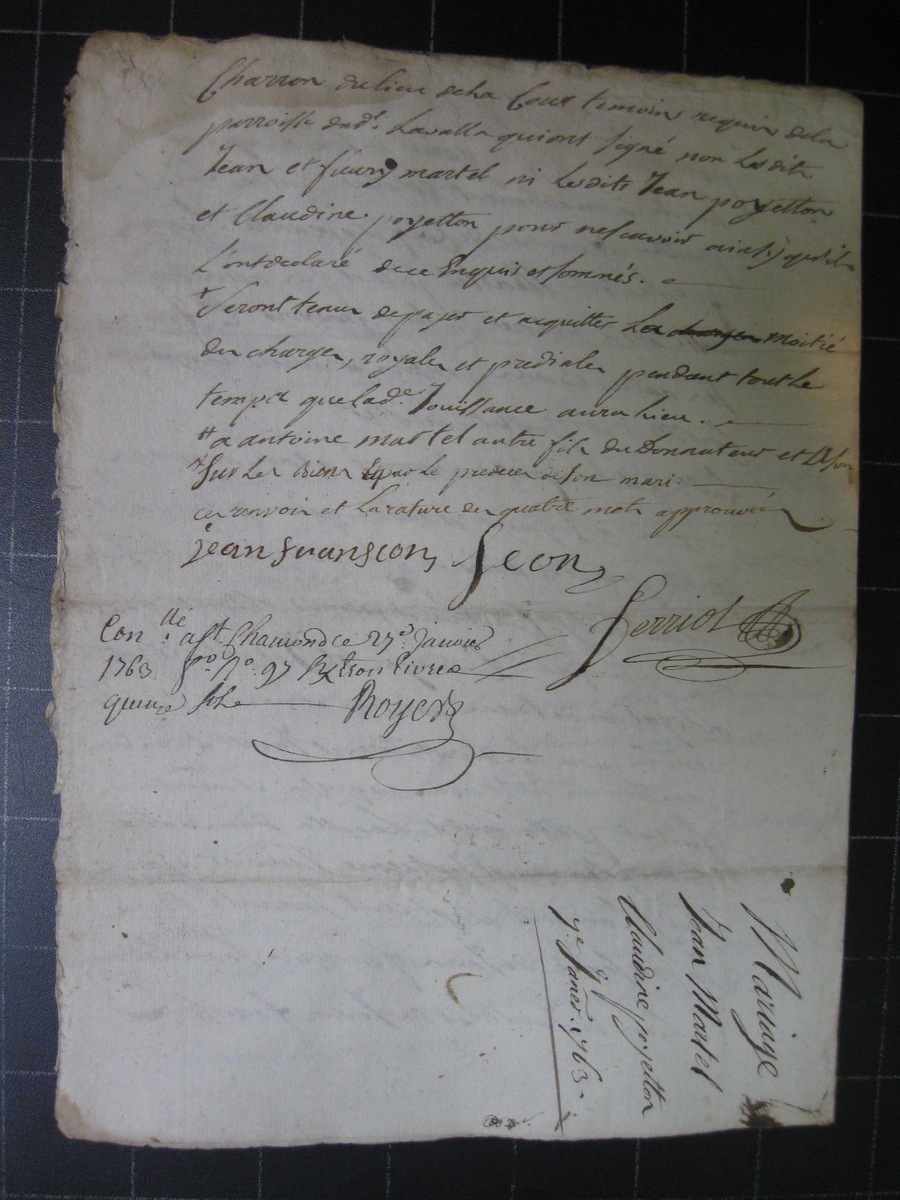 Charron du lieu de la Cour temoin requin de la
parroisse dud.t Lavalla qui ont signé non Lesdits
Jean et fleury martel ni Lesdits Jean poyetton
et Claudine poyetton pour ne scavoir ainsy quils
L'ont declaré de ce Enquis et sommés.
+ Seront tenu de payer et acquitter La charger moitié
des charges, royales et prediales pendant tout le
temps que lad.e Jouissance aura lieu.
# a antoine martel autre fils du Donnateur et
Sur les Biens par le predeces de son mari.
ces renvoir et la rature de quatre mots approuvés
jean fuanscon Geon
Ferriol
Con.llé a St. Chamond ce 27e Janvier
1763 fo. 70. 97 R trois Livres
quinze sols Royer
Mariage
Jean Martel
Claudine poyetton
7.e Janer. 1763